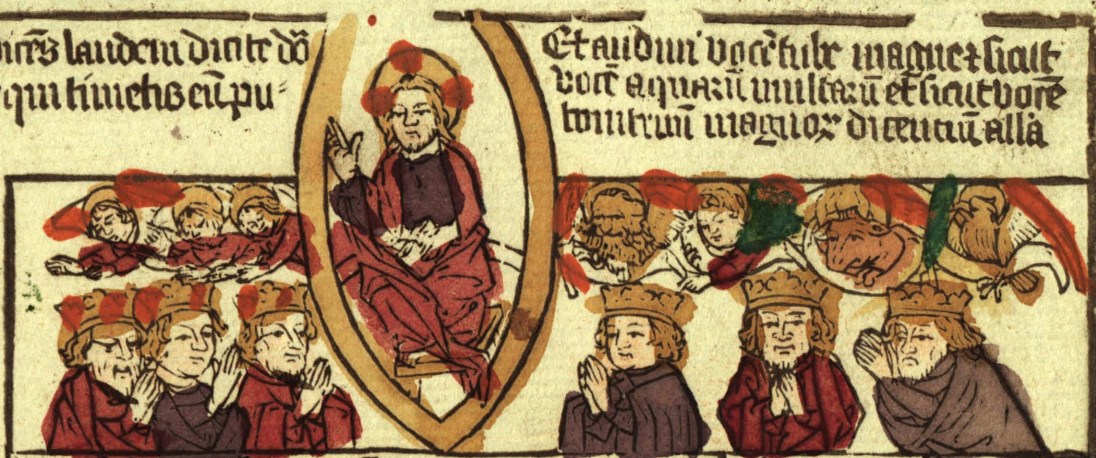 icēs laudem dicite dō
qui timetis eū pu⸗
Et audiui vocē tube magne ⁊ sicut
vocē aquarū multarū et sicut vocē
tonitruū magnoꝝ dicenciū alla